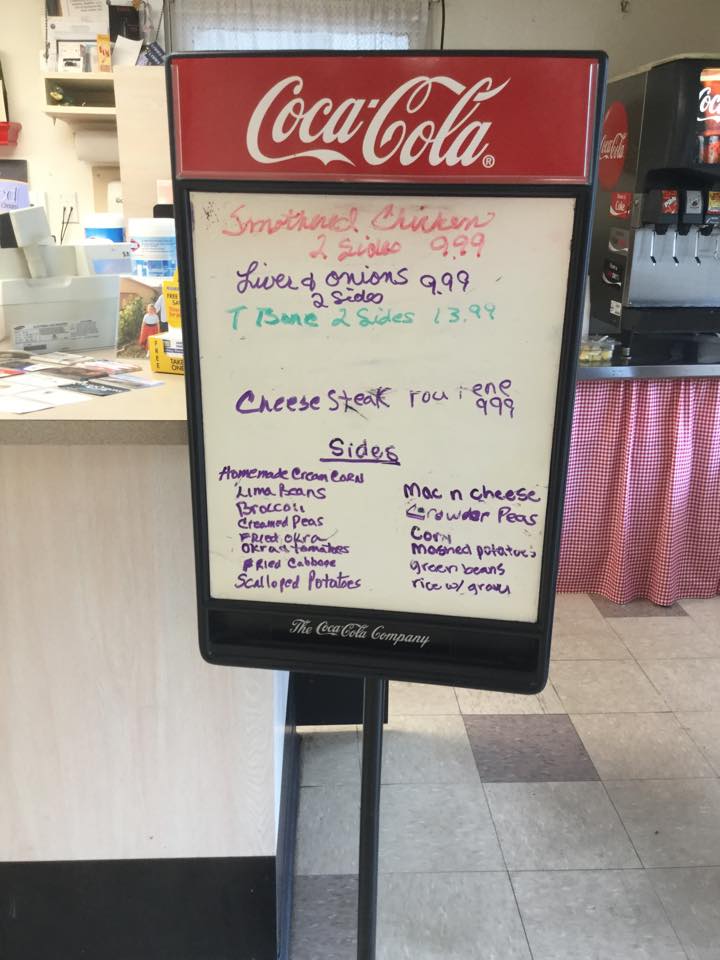 Coca-Cola®
Smothered Chicken
2 Sides 9.99
Liver & onions 9.99
2 Sides
T Bone 2 Sides 13.99
Cheese Steak
999
Sides
Homemade Cream Corn
Lima Beans
Broccoli
Creamed Peas
Fried Okra
Okra & tomatoes
Fried Cabbage
Scalloped Potatoes
Mac n cheese
Crowder Peas
Corn
Mashed potatoes
green beans
rice w/ gravy
The Coca-Cola Company
FREE
TAKE ONE
Coca-Cola